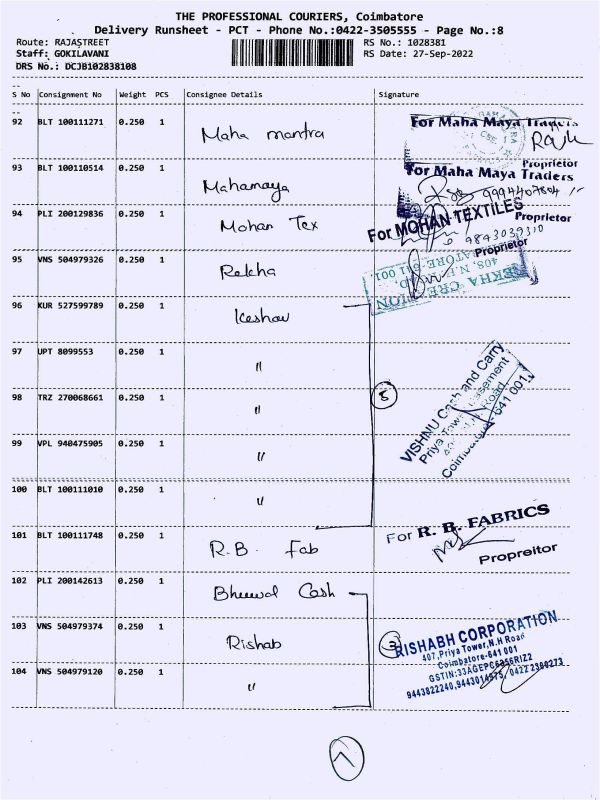 THE PROFESSIONAL COURIERS, Coimbatore
Delivery Runsheet - PCT - Phone No.:0422-3505555 - Page No.:8
Route: RAJASTREET RS No.: 1028381
Staff: GOKILAVANI RS Date: 27-Sep-2022
DRS No.: DCJB102838108
S No Consignment No Weight PCS Consignee Details Signature
92 BLT 100111271 0.250 1 Maha mantra For Maha Maya Traders
Proprietor
93 BLT 100110514 0.250 1 Mahamaya For Maha Maya Traders
9994407804
Proprietor
94 PLI 200129836 0.250 1 Mohan Tex For MOHAN TEXTILES
9843039310
Proprietor
95 VNS 504979326 0.250 1 Rekha
96 KUR 527599789 0.250 1 Keshav
97 UPT 8099553 0.250 1 "
98 TRZ 270068661 0.250 1 " 5
VISHNU Cash and Carry
Priya Tower Basement
Road
Coimbatore-641 001
99 VPL 940475905 0.250 1 "
100 BLT 100111010 0.250 1 "
101 BLT 100111748 0.250 1 R.B. Fab For R. B. FABRICS
Propreitor
102 PLI 200142613 0.250 1 Cash
103 VNS 504979374 0.250 1 Rishab 3
RISHABH CORPORATION
407, Priya Tower, N.H Road
Coimbatore-641 001
104 VNS 504979120 0.250 1 "